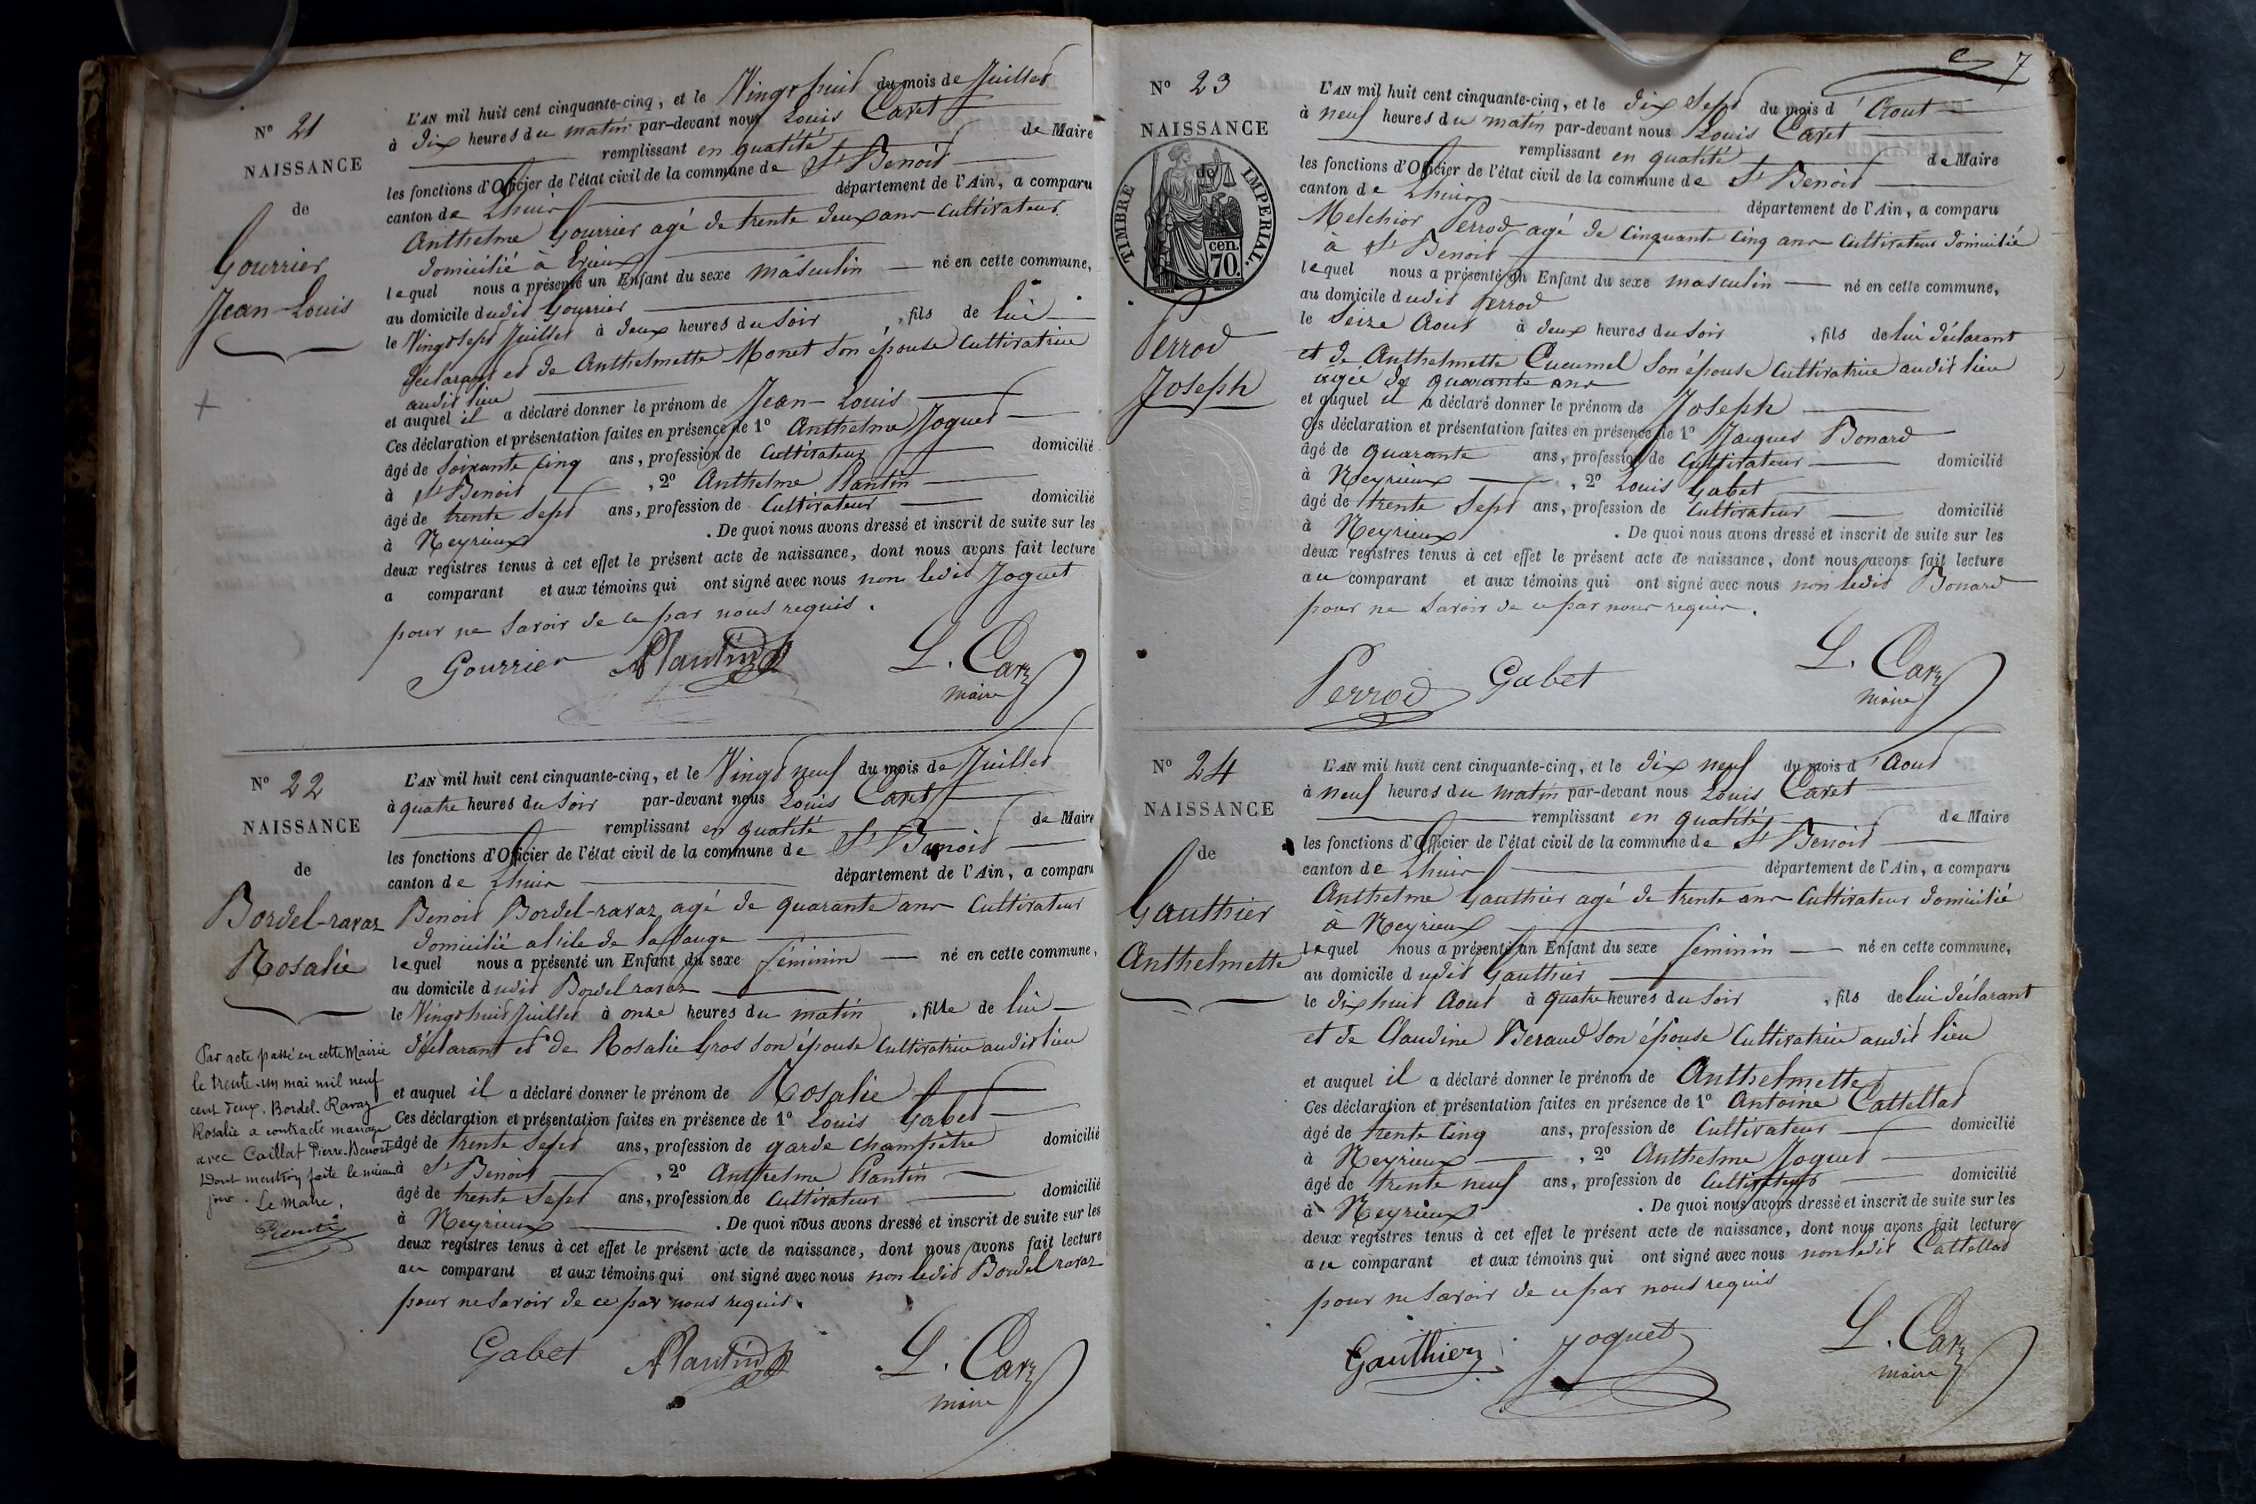 N° 21
NAISSANCE
de
Gourrier
Jean-Louis
L'AN mil huit cent cinquante-cinq, et le Vingt huit du mois de Juillet
à dix heures du matin par-devant nous Louis Caret
remplissant en qualité de Maire
les fonctions d'Officier de l'état civil de la commune de St Benoit
canton de Lhuis département de l'Ain, a comparu
Anthelme Gourrier agé de trente deux ans Cultivateur
domicilié à
lequel nous a présenté un Enfant du sexe masculin né en cette commune,
au domicile dudit Gourrier
le Vingt sept Juillet à deux heures du Soir, fils de lui
déclarant et de Anthelmette Monet son épouse Cultivatrice
audit lieu
et auquel il a déclaré donner le prénom de Jean-Louis
Ces déclaration et présentation faites en présence de 1° Anthelme Joguet
âgé de Soixante cinq ans, profession de Cultivateur domicilié
à St Benoit, 2° Anthelme Plantin
âgé de trente sept ans, profession de Cultivateur domicilié
à Neyrieux. De quoi nous avons dressé et inscrit de suite sur les
deux registres tenus à cet effet le présent acte de naissance, dont nous avons fait lecture
a comparant et aux témoins qui ont signé avec nous non ledit Joguet
pour ne savoir de ce par nous requis.
Gourrier Plantin L. Caret
maire
N° 22
NAISSANCE
de
Bordel-ravaz
Rosalie
Par acte passé en cette Mairie
le trente-un mai mil neuf
cent deux, Bordel-Ravaz
Rosalie a contracté mariage
avec Caillat Pierre-Benoit
Dont mention faite le même
jour. Le Maire,
L'AN mil huit cent cinquante-cinq, et le Vingt neuf du mois de Juillet
à quatre heures du Soir par-devant nous Louis Caret
remplissant en qualité de Maire
les fonctions d'Officier de l'état civil de la commune de St Benoit
canton de Lhuis département de l'Ain, a comparu
Benoit Bordel-ravaz agé de quarante ans Cultivateur
domicilié à l'ile de la Sauge
lequel nous a présenté un Enfant du sexe féminin né en cette commune,
au domicile dudit Bordel ravaz
le Vingt huit Juillet à onze heures du matin, fille de lui
déclarant et de Rosalie Gros son épouse Cultivatrice audit lieu
et auquel il a déclaré donner le prénom de Rosalie
Ces déclaration et présentation faites en présence de 1° Louis Gabet
âgé de trente sept ans, profession de garde champêtre domicilié
à St Benoit, 2° Anthelme Plantin
âgé de trente sept ans, profession de Cultivateur domicilié
à Neyrieux. De quoi nous avons dressé et inscrit de suite sur les
deux registres tenus à cet effet le présent acte de naissance, dont nous avons fait lecture
au comparant et aux témoins qui ont signé avec nous non ledit Bordel ravaz
pour ne savoir de ce par nous requis.
Gabet Plantin L. Caret
maire
7
N° 23
NAISSANCE
de
TIMBRE IMPERIAL.
cen.
70.
Perrod
Joseph
L'AN mil huit cent cinquante-cinq, et le dix Sept du mois d'Aout
à neuf heures du matin par-devant nous Louis Caret
remplissant en qualité de Maire
les fonctions d'Officier de l'état civil de la commune de St Benoit
canton de Lhuis département de l'Ain, a comparu
Melchior Perrod agé de Cinquante cinq ans Cultivateur domicilié
à St Benoit
lequel nous a présenté un Enfant du sexe masculin né en cette commune,
au domicile dudit Perrod
le Seize Aout à deux heures du Soir, fils de lui déclarant
et de Anthelmette Cucumel son épouse Cultivatrice audit lieu
agée de quarante ans
et auquel il a déclaré donner le prénom de Joseph
Ces déclaration et présentation faites en présence de 1° Jacques Bonard
âgé de quarante ans, profession de Cultivateur domicilié
à Neyrieux, 2° Louis Gabet
âgé de trente Sept ans, profession de Cultivateur domicilié
à Neyrieux. De quoi nous avons dressé et inscrit de suite sur les
deux registres tenus à cet effet le présent acte de naissance, dont nous avons fait lecture
au comparant et aux témoins qui ont signé avec nous non ledit Bonard
pour ne savoir de ce par nous requis.
Perrod Gabet L. Caret
maire
N° 24
NAISSANCE
de
Gauthier
Anthelmette
L'AN mil huit cent cinquante-cinq, et le dix neuf du mois d'Aout
à neuf heures du matin par-devant nous Louis Caret
remplissant en qualité de Maire
les fonctions d'Officier de l'état civil de la commune de St Benoit
canton de Lhuis département de l'Ain, a comparu
Anthelme Gauthier agé de trente ans Cultivateur domicilié
à Neyrieux
lequel nous a présenté un Enfant du sexe féminin né en cette commune,
au domicile dudit Gauthier
le dix huit Aout à quatre heures du Soir, fils de lui déclarant
et de Claudine Beraud son épouse Cultivatrice audit lieu
et auquel il a déclaré donner le prénom de Anthelmette
Ces déclaration et présentation faites en présence de 1° Antoine Cattellad
âgé de trente Cinq ans, profession de Cultivateur domicilié
à Neyrieux, 2° Anthelme Joguet
âgé de trente neuf ans, profession de Cultivateur domicilié
à Neyrieux. De quoi nous avons dressé et inscrit de suite sur les
deux registres tenus à cet effet le présent acte de naissance, dont nous avons fait lecture
au comparant et aux témoins qui ont signé avec nous non ledit Cattellad
pour ne savoir de ce par nous requis
Gauthier Joguet L. Caret
maire